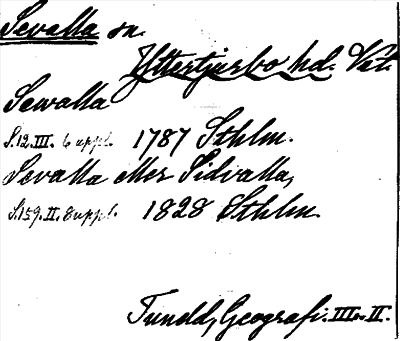 Sevalla sn.
Yttertjurbo hd. Vst.
Sewalla
S.12.III. 6 uppl. 1787 Sthlm.
Sevalla eller Sidvalla,
S.159.II. 8 uppl. 1828 Sthlm.
Tuneld, Geografi. III o. II.